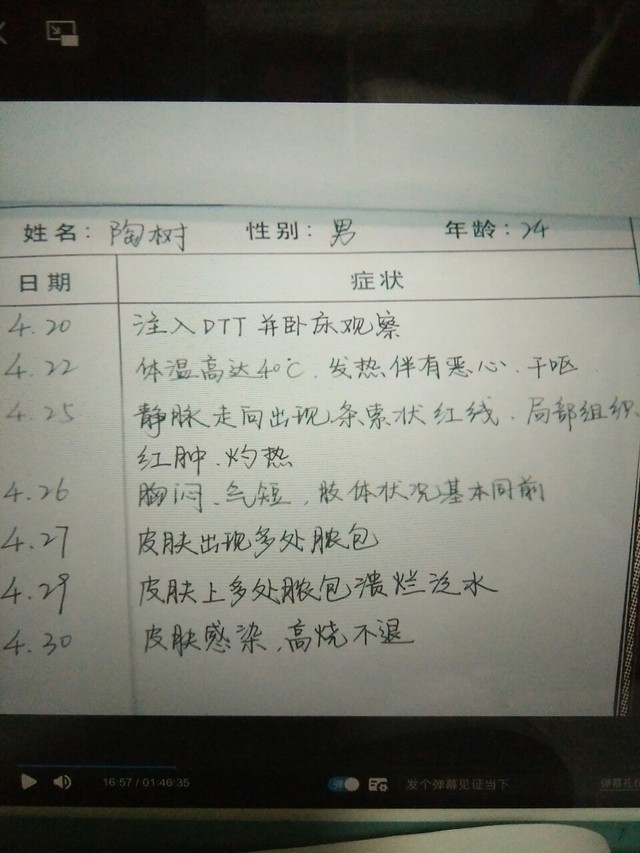 姓名：陶树 性别：男 年龄：24
日期 症状
4.20 注入DTT并卧床观察
4.22 体温高达40℃、发热伴有恶心、干呕
4.25 静脉走向出现条索状红线、局部组织
红肿、灼热
4.26 胸闷、气短，肢体状况基本同前
4.27 皮肤出现多处脓包
4.29 皮肤上多处脓包溃烂泛水
4.30 皮肤感染，高烧不退
16:57 / 01:46:35 弹 发个弹幕见证当下 弹幕礼仪